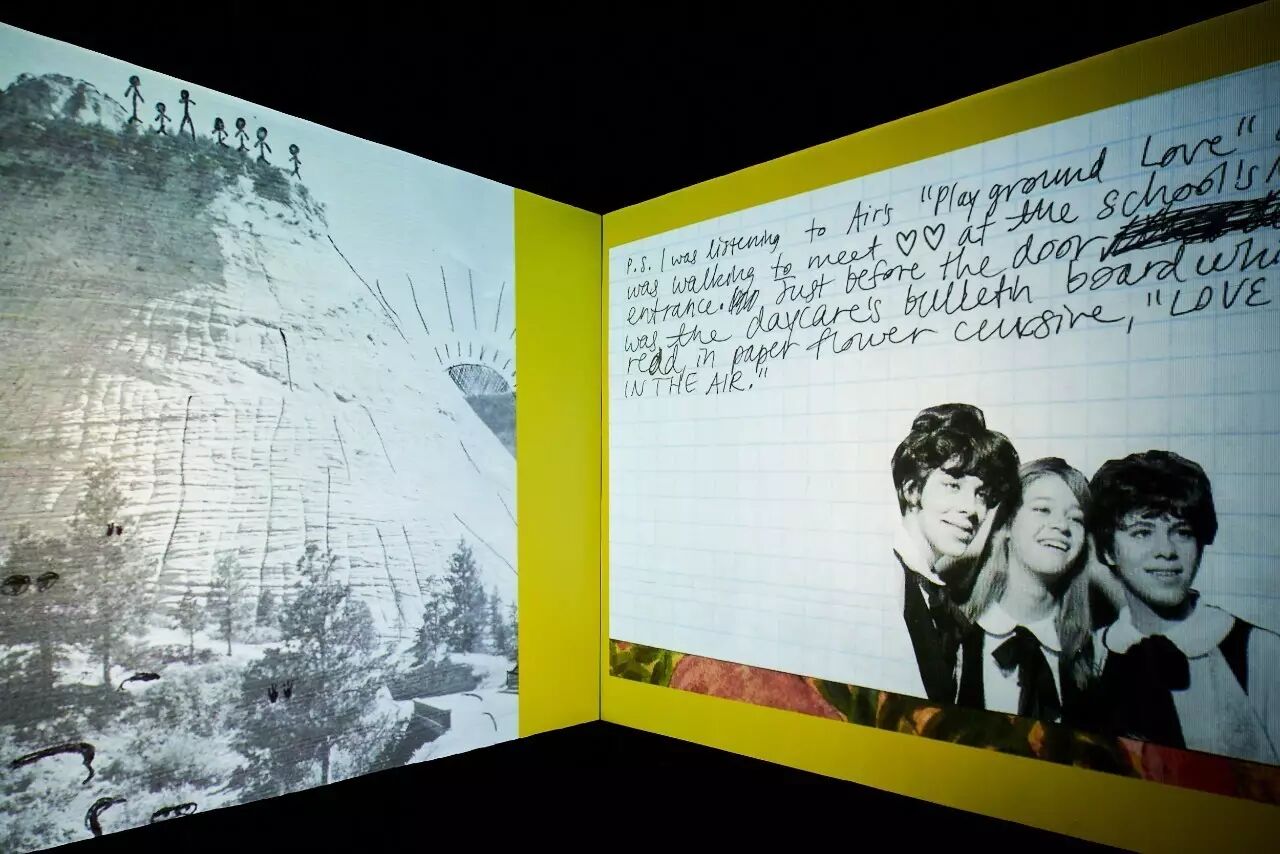 P.S. I was listening to Air's "Playground Love"
was walking to meet ♡♡ at the school's
entrance. Just before the door
was the daycare's bulletin board
read, in paper flower cursive, "LOVE
IN THE AIR."